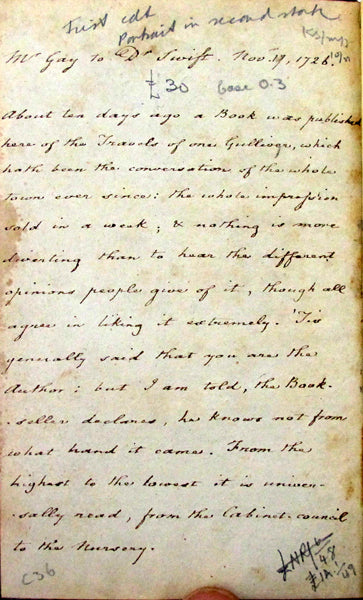 First edt
Portrait in second state
Mr Gay to Dr Swift. Novr 17, 1726.
£30 base 0.3
About ten days ago a Book was published
here of the Travels of one Gulliver, which
hath been the conversation of the whole
town ever since: the whole impression
sold in a week; & nothing is more
diverting than to hear the different
opinions people give of it, though all
agree in liking it extremely. 'Tis
generally said that you are the
Author: but I am told, the Book-
-seller declares, he knows not from
what hand it came. From the
highest to the lowest it is univer-
-sally read, from the Cabinet-council
to the Nursery.
C36
48